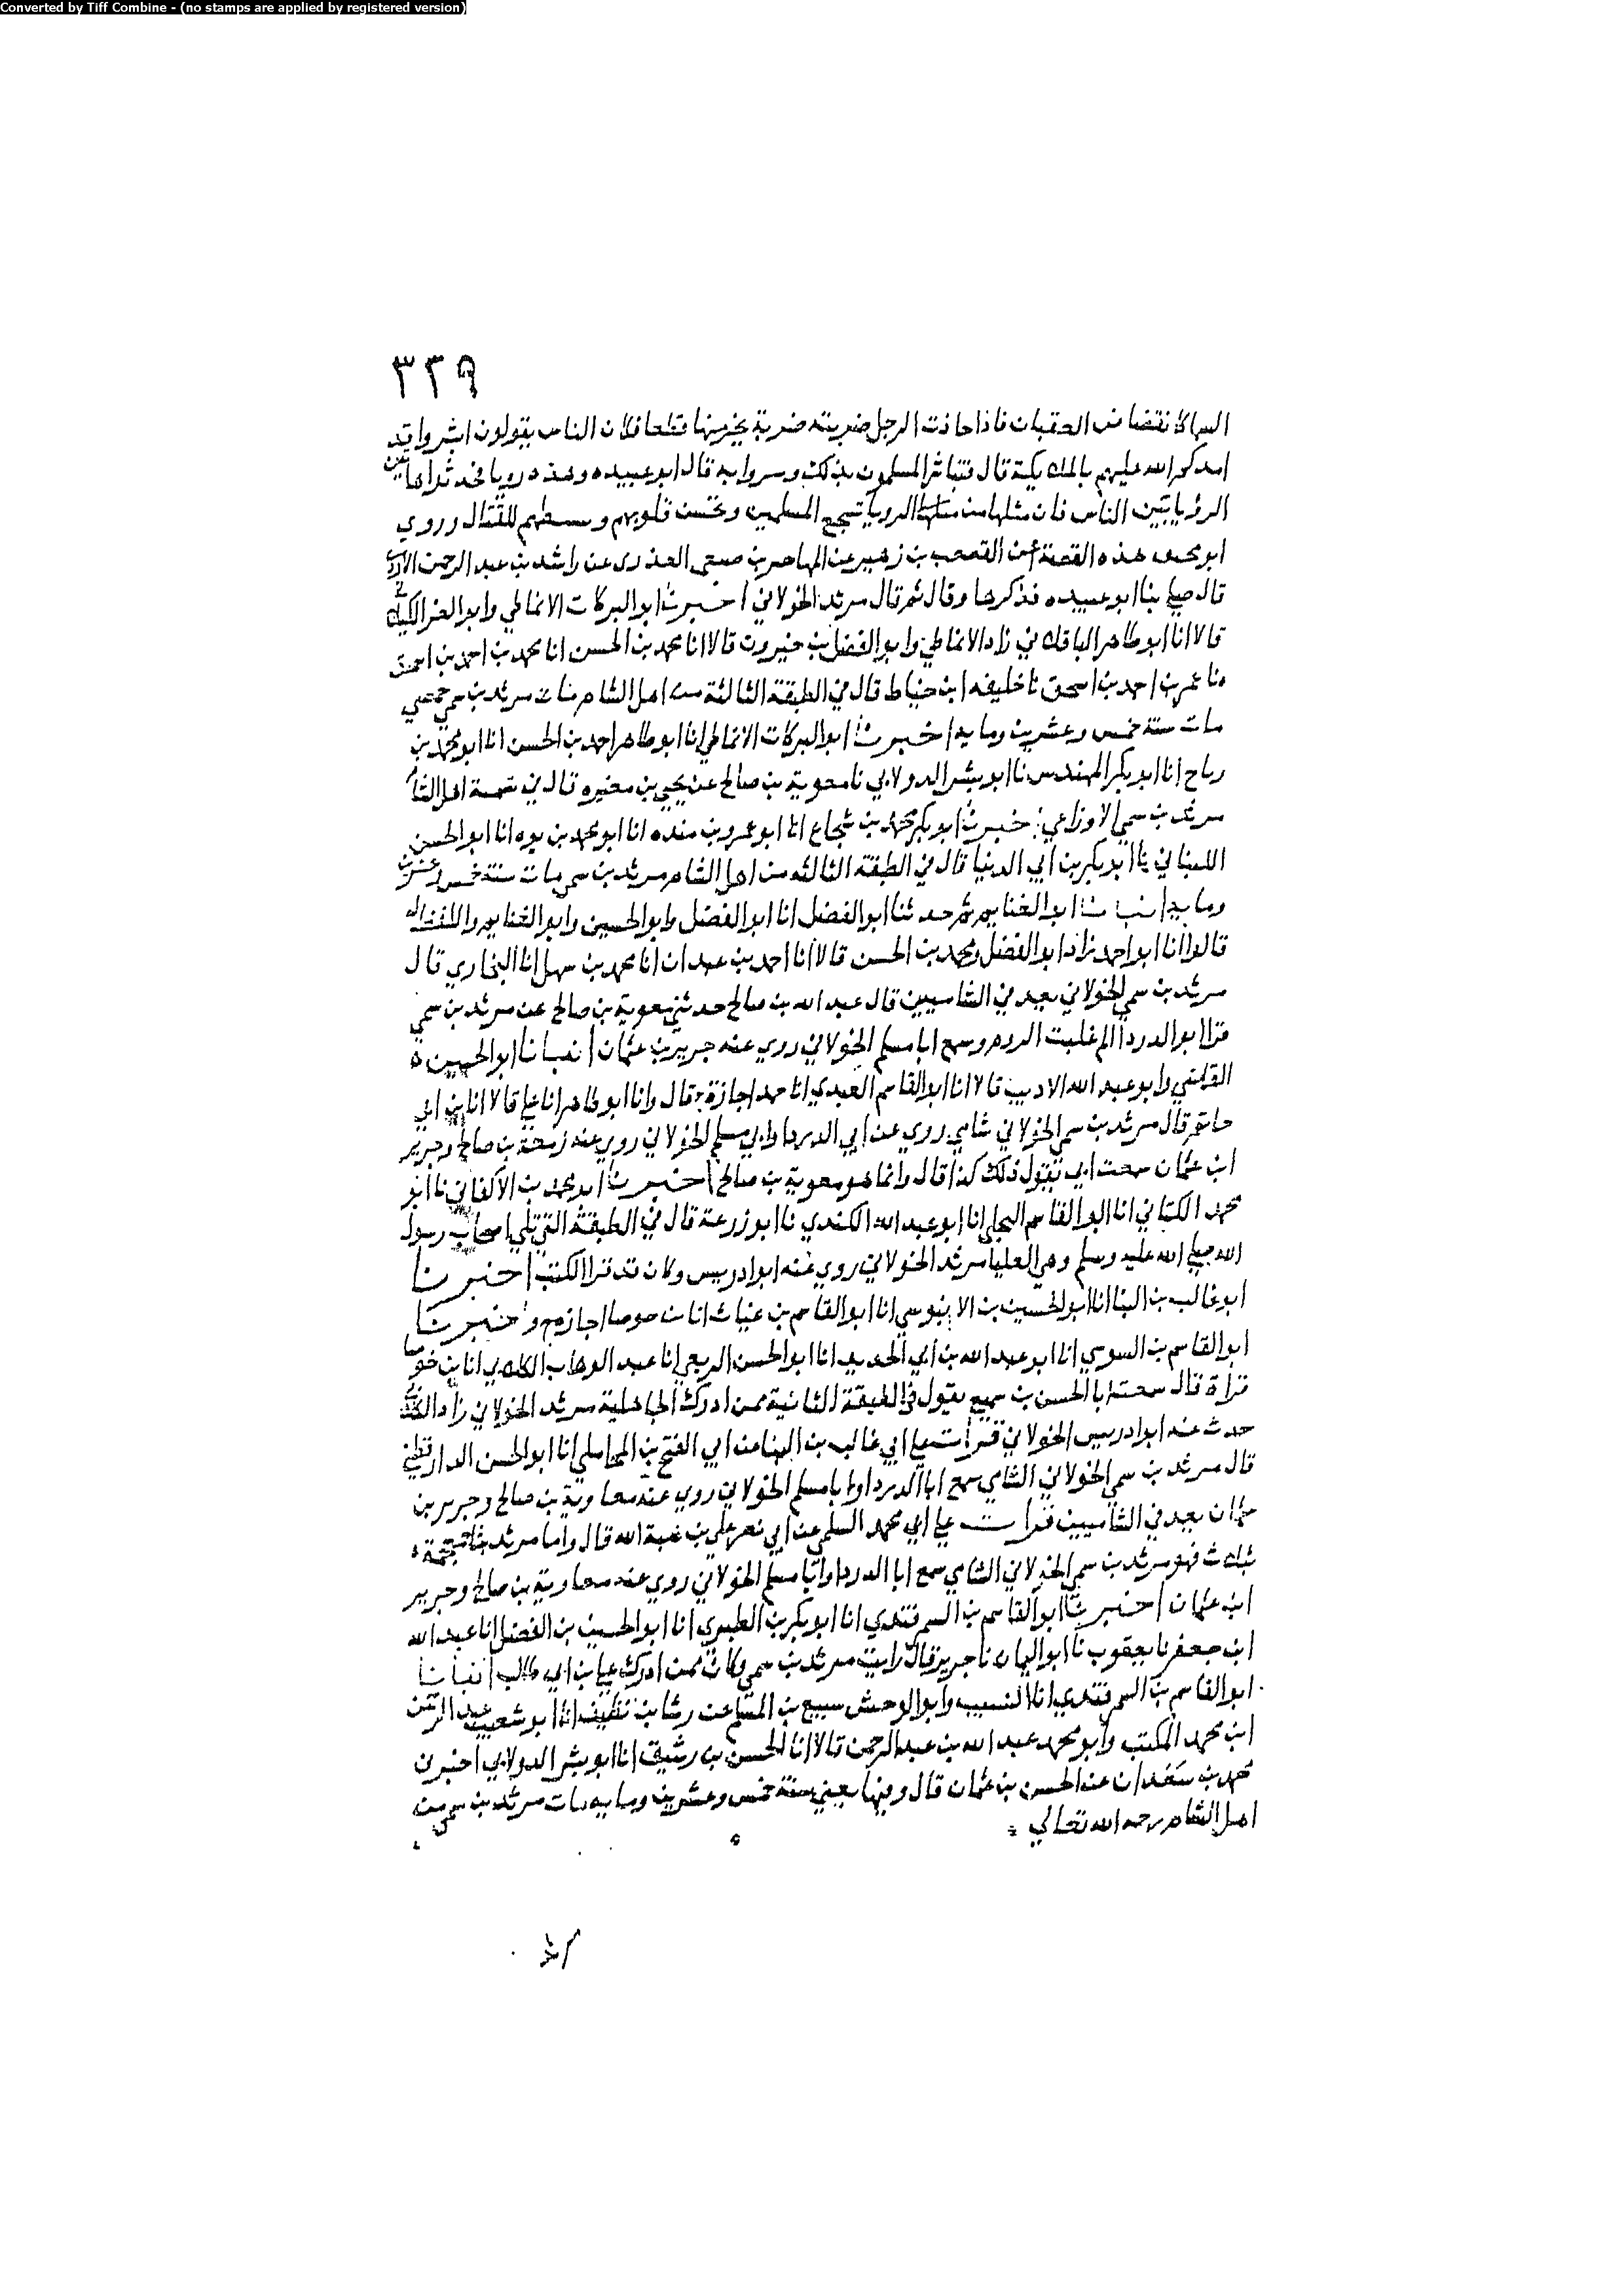 Converted by Tiff Combine - (no stamps are applied by registered version)
٣٢٩
السما كانقضاض العقبان فاذا حاذت الرجل ضربته ضربة يخر منها قطعا فكان الناس يقولون ابشروا قد
امدكم الله عليهم بالملائكة قال فتباشر المسلمون بذلك وسروا به قال ابو عبيده وهذه رويا فحدثوا بها
الرؤيا بين الناس فان مثلها من الرويا تشجع المسلمين وتحسن قلوبهم وتنشطهم للقتال وروي
ابو مخنف هذه القصة عن القعب بن زهير عن المهاصر بن صيفي العذري عن راشد بن عبد الرحمن الازدي
قال صلى بنا ابو عبيده فذكرها وقال ثم قال مرثد الخولاني اخبرنا ابو البركات الانماطي وابو العز الكيلي
قالا انا ابو طاهر الباقلاني زاد الانماطي وابو الفضل بن خيرون قالا انا محمد بن الحسن انا محمد بن احمد بن اسحق
نا عمر بن احمد بن اسحق نا خليفه ابن خياط قال في الطبقة الثالثة من اهل الشامات مرثد بن سمي حمصي
مات سنة خمس وعشرين ومايه اخبرنا ابو البركات الانماطي انا ابو طاهر احمد بن الحسن انا ابو محمد بن
رباح انا ابو بكر المهندس نا ابو بشر الدولابي نا معوية بن صالح عن يحيى بن معين قال في تسمية اهل الشام
مرثد بن سمي الاوزاعي اخبرنا ابو بكر محمد بن شجاع انا ابو عمرو بن منده انا ابو محمد بن يوه انا ابو الحسن
اللنباني نا ابو بكر بن ابي الدنيا قال في الطبقة الثالثه من اهل الشام مرثد بن سمي مات سنة خمس وعشرين
ومايه انبانا ابو الغنايم ثم حدثنا ابو الفضل انا ابو الفضل وابو الحسين وابو الغنايم واللفظ له
قالوا انا ابو احمد زاد ابو الفضل ومحمد بن الحسن قالا انا احمد بن عبدان انا محمد بن سهل انا البخاري قال
مرثد بن سمي الخولاني يعد في الشاميين قال عبد الله بن صالح حدثني معوية بن صالح عن مرثد بن سمي
قرا ابو الدردا الم غلبت الروم وسمع ابا مسلم الخولاني روي عنه جرير بن عثمان انبانا ابو الحسين
القاضي وابو عبد الله الاديب قالا انا ابو القاسم العبدي انا حمد اجازة قال وانا ابو طاهر انا علي قالا انا ابن ابي
حاتم قال مرثد بن سمي الخولاني شامي روي عن ابي الدردا وابي مسلم الخولاني روي عنه زمعة بن صالح وجرير
ابن عثمان سمعت ابي يقول ذلك كذا قال وانما هو معوية بن صالح اخبرنا ابو محمد بن الاكفاني نا ابو
محمد الكتاني انا ابو القاسم البجلي انا ابو عبد الله الكندي نا ابو زرعة قال في الطبقة التي تلي اصحاب رسول
الله صلى الله عليه وسلم وهي العليا مرثد الخولاني روي عنه ابو ادريس وكان قد قرا الكتب اخبرنا
ابو غالب بن البنا انا ابو الحسين بن الابنوسي انا ابو القاسم بن عتاب انا بن حوصا اجازة ح واخبرنا
ابو القاسم بن السوسي انا ابو عبد الله بن ابي الحديد انا ابو الحسن الربعي انا عبد الوهاب الكلابي انا بن حوصا
قراة قال سمعت ابا الحسن بن سميع يقول في الطبقة الثانية ممن ادرك الجاهلية مرثد الخولاني زاد
حدث عنه ابو ادريس الخولاني قرات علي ابي غالب بن البنا عن ابي الفتح بن المحاملي انا ابو الحسن الدارقطني
قال مرثد بن سمي الخولاني الشامي سمع ابا الدردا وابا مسلم الخولاني روي عنه معاوية بن صالح وجرير بن
عثمان يعد في الشاميين قرات علي ابي محمد السلمي عن ابي نصر علي بن هبة الله قال واما مرثد
بثلاث فهو مرثد بن سمي الخولاني الشامي سمع ابا الدردا وابا مسلم الخولاني روي عنه معاوية بن صالح وجرير
ابن عثمان اخبرنا ابو القاسم بن السمرقندي انا ابو بكر بن الطبري انا ابو الحسين بن الفضل انا عبد الله
ابن جعفر نا يعقوب نا ابو اليمان نا جرير قال رايت مرثد بن سمي وكان ممن ادرك علي بن ابي طالب انبانا
ابو القاسم بن السمرقندي انا النسيب وابو الوحش سبيع بن المسلم عن رشا بن نظيف انا ابو شعيب عبد الرحمن
ابن محمد المكتب وابو محمد عبد الله بن عبد الرحمن قالا انا الحسن بن رشيق انا ابو بشر الدولابي اخبرني
محمد بن سعدان عن الحسن بن عثمان قال وفيها يعني سنة خمس وعشرين ومايه مات مرثد بن سمي من
اهل الشام رحمه الله تعالي